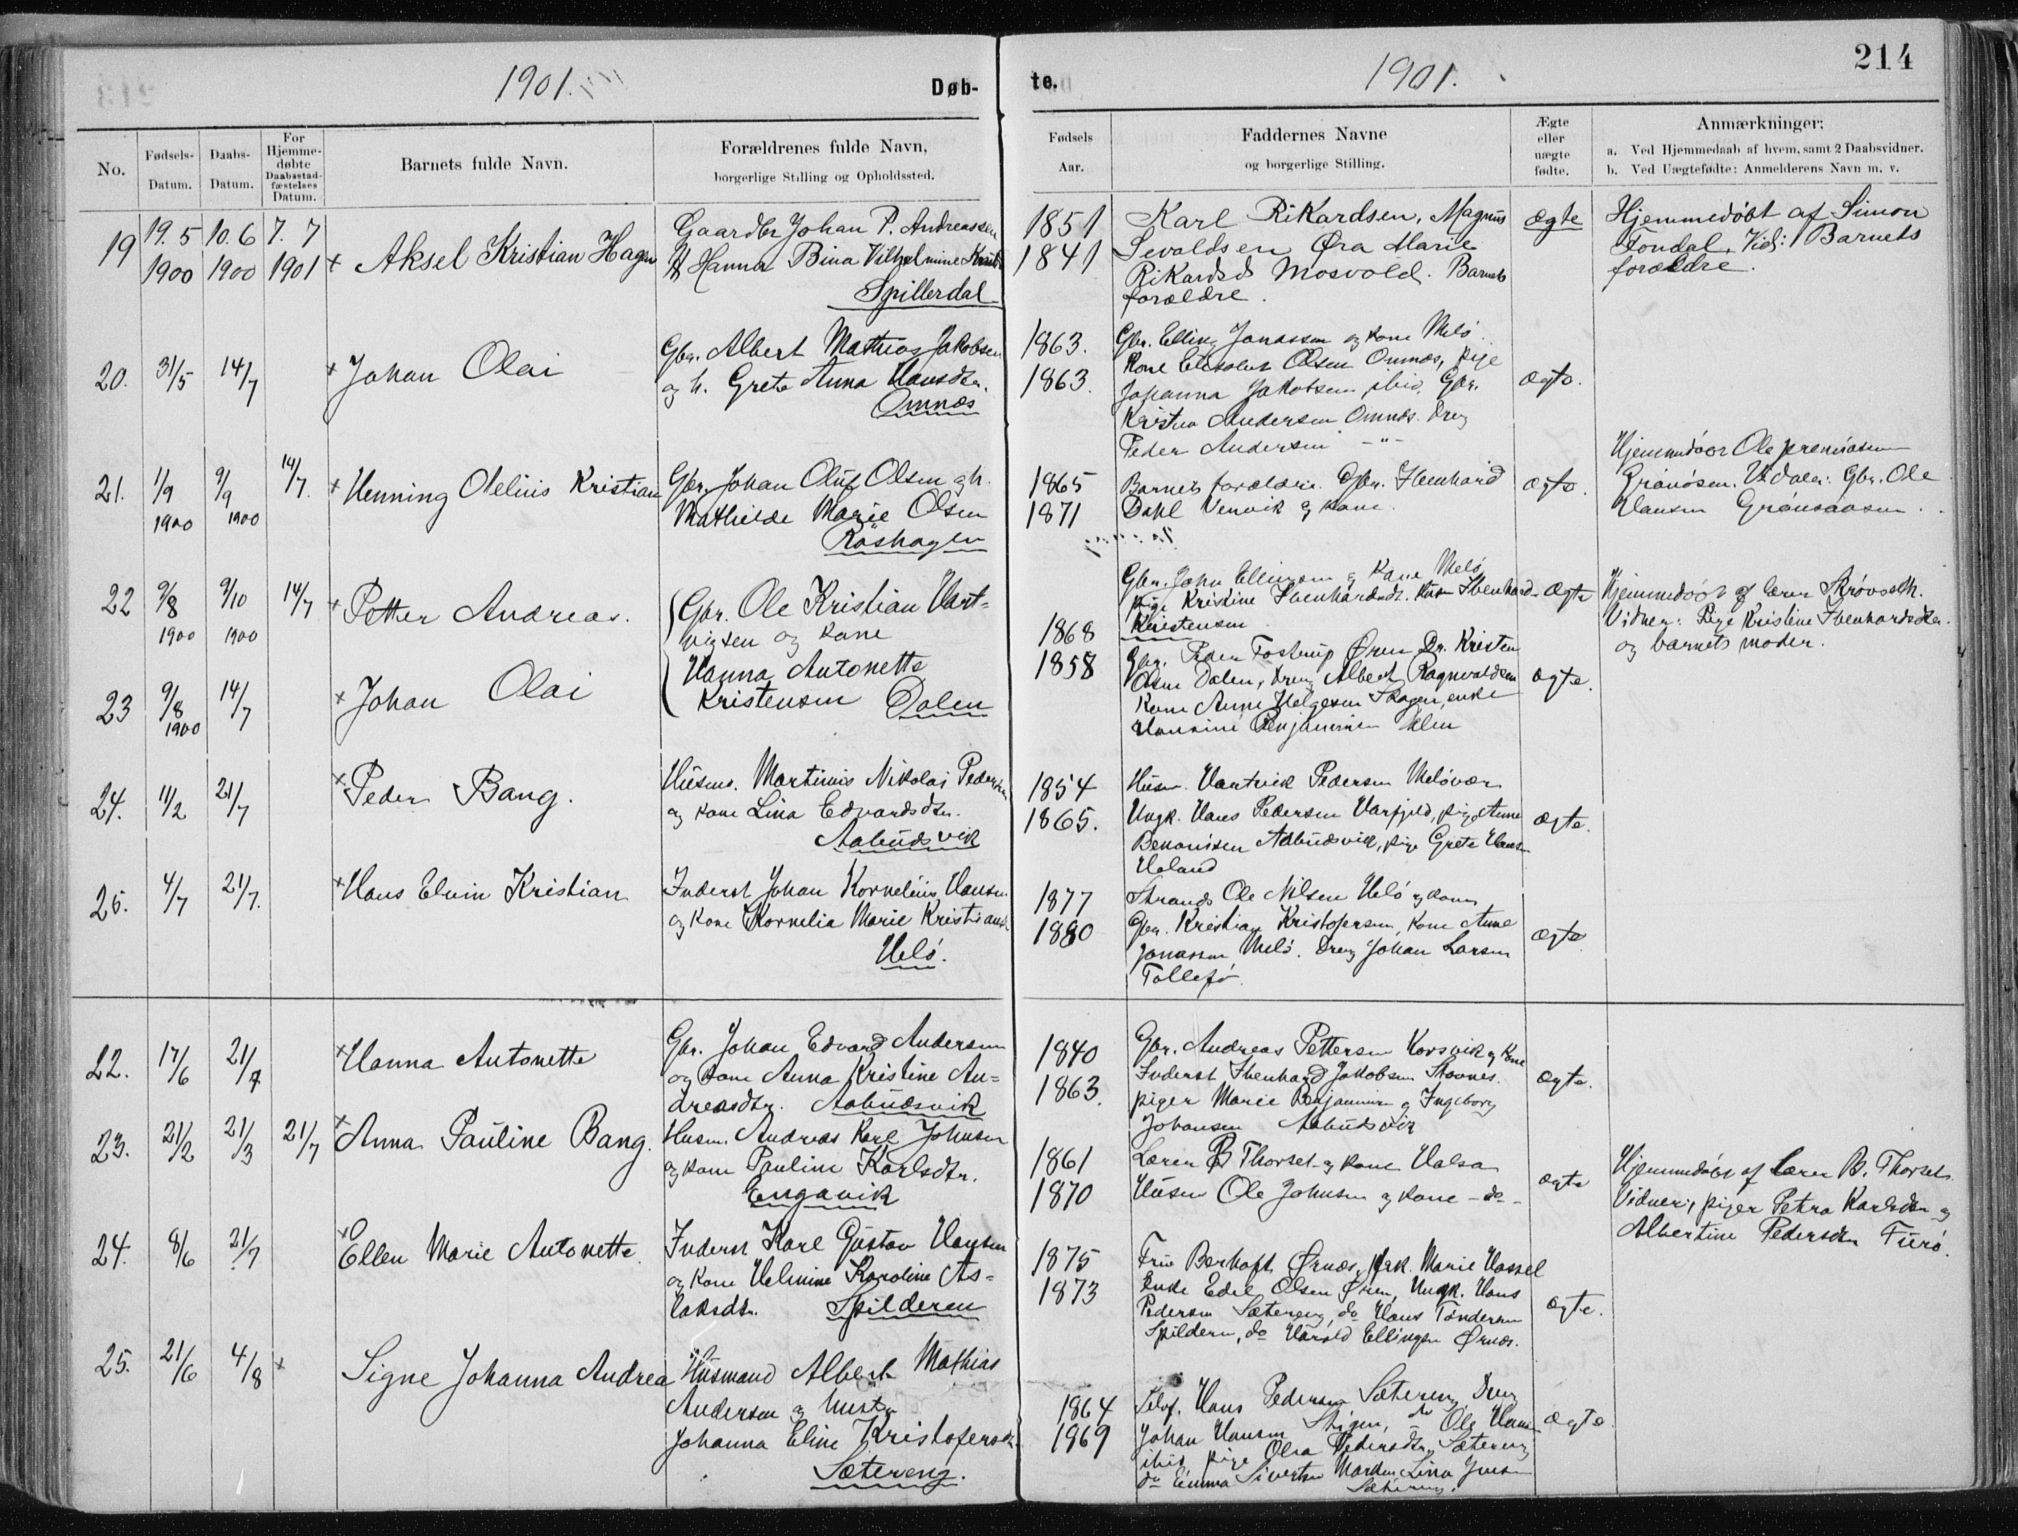 214
1901.
Døb-
te.
1901.
No.
Fødsels-
Datum.
Daabs-
Datum.
For
Hjemme-
døbte
Daabsstad-
fæstelses
Datum.
Barnets fulde Navn.
Forældrenes fulde Navn,
borgerlige Stilling og Opholdssted.
Fødsels
Aar.
Faddernes Navne
og borgerlige Stilling.
Ægte
eller
uægte
fødte.
Anmærkninger:
a. Ved Hjemmedaab af hvem, samt 2 Daabsvidner.
b. Ved Uægtefødte: Anmelderens Navn m. v.
19
19.5 10.6 7.7
1900 1900 1901
Aksel Kristian Hagen
Gaardbr Johan P. Andreassen
H Hanna Bina Vilhelmine
Spillerdal
1851
1841
Karl Rikardsen, Magnus
Sevaldsen Øra Marie
Rikardsd Mosvold. Barnets
forældre.
Ægte
Hjemmedøbt af Simon
Fondal. Vid: Barnets
forældre.
20.
31/5 14/7
Johan Olai
Gbr. Albert Mathias Jakobsen
og h. Grete Anna Hansdtr.
Omnæs
1863.
1863.
Gbr. Elling Jonassen og kone Melö
Kone Olsen Omnæs, pige
Johanna Jakobsen ibid, Gbr.
Andersen Omnæs. Dreng
Peder Andersen -"-
Ægte.
21.
1/9 9/9 14/7.
1900 1900
Henning Odelius Kristian
Gbr. Johan Oluf Olsen og h.
Mathilde Marie Olsen
Röshagen
1865
1871
Barnets forældre. Gbr. Ibenhard
Dahl Venvik og kone.
Ægte.
Ole
Gbr. Ole
Hansen
22
9/8 9/10 14/7
1900 1900
Petter Andreas.
Gbr. Ole Kristian Hart-
vigsen og kone
Hanna Antonette
Kristensen Dalen
1868
1858
Gbr. John Ellingsen og kone Melö
pige Kristine Ibenhardsdt.
Kristensen
Ægte
Hjemmedøbt af lærer
Vidner: Pige Kristine Ibenhardsdtr.
og barnets moder.
23
9/8 14/7
1900
Johan Olai
Gbr. Peder Øren Dr. Kristen
Olsen Dalen, dreng Albert Ragnvaldsen
Kone Anne Helgesen Skagen, enke
Hansine Benjaminsen
Ægte.
24.
11/2 21/7
Peder Bang.
Husm. Martinus Nikolai Pedersen
og kone Lina Edvardsdtr.
Aabudsvik
1854
1865.
Husm. Hartvik Pedersen Melövær
Ungk. Hans Pedersen Varfjeld, pige Anne
Benonisen Aabudsvik, pige Grete Hansen
Haland
Ægte.
25.
4/7 21/7.
Hans Elvin Kristian
Inderst Johan Kornelius Hansen
og kone Kornelia Marie Kristiansd.
Melö.
1877
1880
Strands. Ole Nilsen Melö og kone
Gbr. Kristian Kristofersen, kone Anne
Jonassen Melö. Dreng Johan Larsen
Ægte.
22.
17/6 21/7
Hanna Antonette
Gbr. Johan Edvard Andersen
og kone Anna Kristine An=
dreasdtr. Aabudsvik
1840
1863.
Gbr. Andreas Pettersen Korsvik og kone
Inderst Ibenhard Jakobsen Stavnes.
piger Marie Benjaminsen og Ingeborg
Johansen Aabudsvik
Ægte.
23.
21/2 21/3 21/7
Anna Pauline Bang.
Husm. Andreas Karl Johnsen
og kone Pauline Karlsdtr.
Engavik
1861
1870
Lærer B Thorset og kone Halsa
Husm Ole Johnsen og kone -do-
Ægte
Hjemmedøbt af Lærer B. Thorset
Vidner: piger Petra Karlsdtr og
Albertine Pedersdtr Furö.
24.
8/6 21/7
Ellen Marie Antonette.
Inderst Karl Gustav Hansen
og kone Helmine Karoline As=
laksdtr. Spilderen
1875
1873
Fru Berhoft Ørnæs, frk. Marie Hassel
Enke Edel Olsen Øren, Ungk. Hans
Pedersen Sætereng, do Hans Tøndersen
Spildern, do Harald Ellingsen Ørnæs.
Ægte.
25.
21/6 4/8
Signe Johanna Andrea
Husmand Albert Mathias
Andersen og hustr
Johanna Eline Kristofersdtr
Sætereng.
1864
1869
Selvf. Hans Pedersen Sætereng Dreng
Johan Hansen Skagen, do Ole Hansen
ibid pige Olea Pedersdtr. Sætereng
do Emma Sivertsen Lina Jensen
Sætereng.
Ægte.